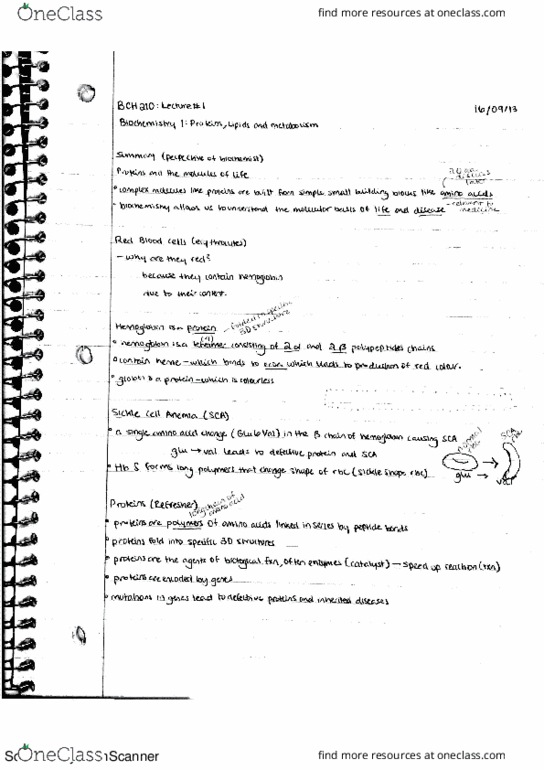 OneClass
find more resources at oneclass.com
BCH210: Lecture #1
16/09/13
Biochemistry 1: Proteins, Lipids and metabolism
Summary (perspective of biochemist)
Proteins and the molecules of life
20 aa
• complex molecules like proteins are built from simple, small building blocks like amino acids
• biochemistry allows us to understand the molecular basis of life and disease
relevant to medicine
Red Blood cells (erythrocytes)
- why are they red?
because they contain hemoglobin
due to their content.
Hemoglobin is a protein - folded in specific 3D structure
• hemoglobin is a tetramer (4) consisting of 2 α and 2 β polypeptides chains
• contain heme - which binds to iron which leads to production of red colour.
• globin is a protein - which is colourless
Sickle Cell Anemia (SCA)
• a single amino acid change (Glu to Val) in the β chain of hemoglobin causing SCA
glu → val leads to defective protein and SCA
• Hb S forms long polymers that change shape of rbc (sickle shape rbc)
normal rbc
SCA rbc
glu → val
Proteins (Refresher)
long chain of amino acid
• proteins are polymers of amino acids linked in series by peptide bonds
• proteins fold into specific 3D structures
• proteins are the agents of biological fxn, often enzymes (catalyst) - speed up reaction (rxn)
• proteins are encoded by genes
• mutations in genes lead to defective proteins and inherited diseases
Scanner
OneClass
find more resources at oneclass.com